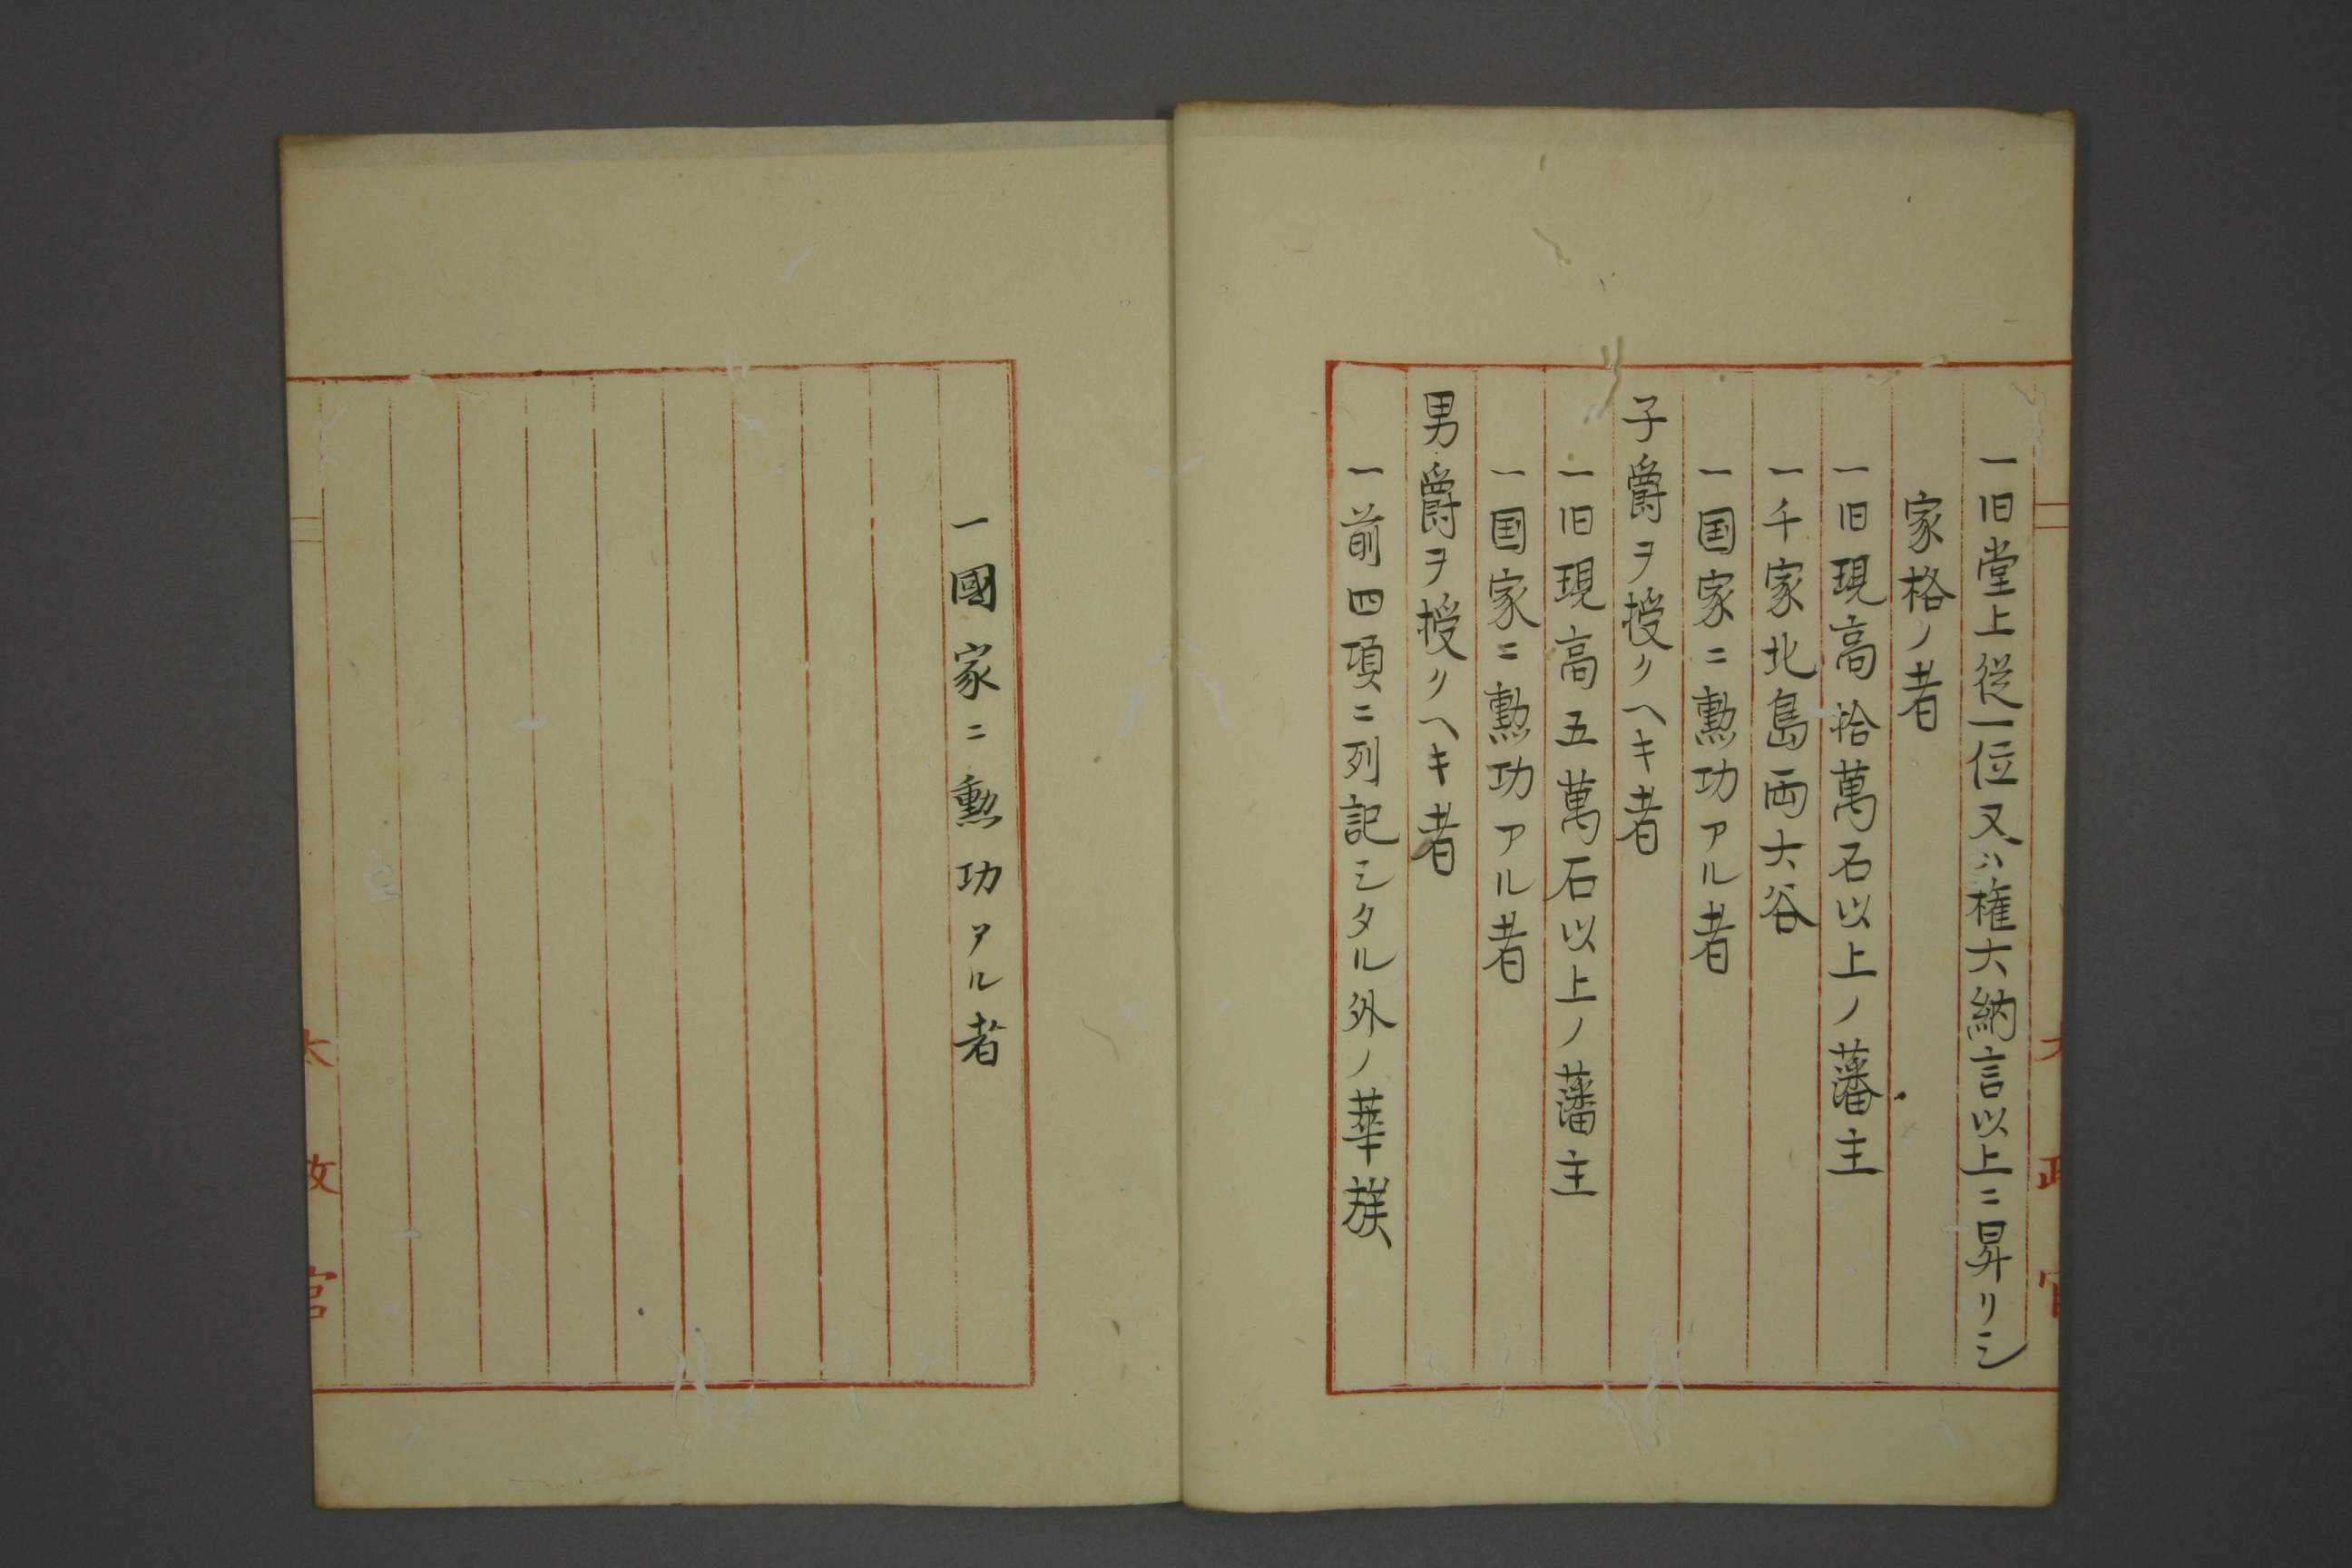 一旧堂上従一位又ハ権大納言以上ニ昇リシ
家格ノ者
一旧現高拾萬石以上ノ藩主
一千家北島両大谷
一国家ニ勲功アル者
子爵ヲ授クヘキ者
一旧現高五萬石以上ノ藩主
一国家ニ勲功アル者
男爵ヲ授クヘキ者
一前四項ニ列記シタル外ノ華族
一國家ニ勲功アル者
太政官